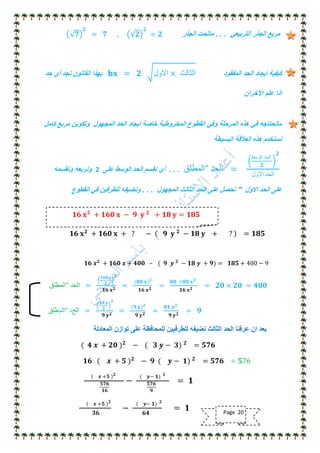 مربع الجذر التربيعي . . . ماتحت الجذر (√2)² = 2 , (√7)² = 7
كيفية ايجاد الحد المفقود bx = 2 √(الاول × الثالث) بهذا القانون نجد أي حد
اذا علم الأخران
مانحتاجه في هذه المرحلة وفي القطوع المخروطية خاصة ايجاد الحد المجهول وتكوين مربع كامل
نستخدم هذه العلاقة البسيطة
الحد "المطلق" = (الحد الوسط / 2)² / الحد الاول . . . اي نقسم الحد الوسط على 2 ونربعه ونقسمه
على الحد الاول " نحصل على الحد الثالث المجهول . . . ونضيفه للطرفين في القطوع
16 x² + 160 x − 9 y² + 18 y = 185
16 x² + 160 x + ? − ( 9 y² − 18 y + ? ) = 185
16 x² + 160 x + 400 − ( 9 y² − 18 y + 9) = 185 + 400 − 9
الحد "المطلق = (160 x / 2)² / 16 x² = (80 x)² / 16 x² = 80 ×80 x² / 16 x² = 20 × 20 = 400
الحد "المطلق = (18 y / 2)² / 9 y² = (9 y)² / 9 y² = 81 y² / 9 y² = 9
بعد ان عرفنا الحد الثالث نضيفه للطرفيين للمحافظة على توازن المعادلة
( 4 x + 20 )² − ( 3 y − 3)² = 576
16 ( x + 5 )² − 9 ( y − 1)² = 576 ÷ 576
( x +5 )² / (576/16) − ( y− 1)² / (576/9) = 1
( x +5 )² / 36 − ( y− 1)² / 64 = 1
Page 20